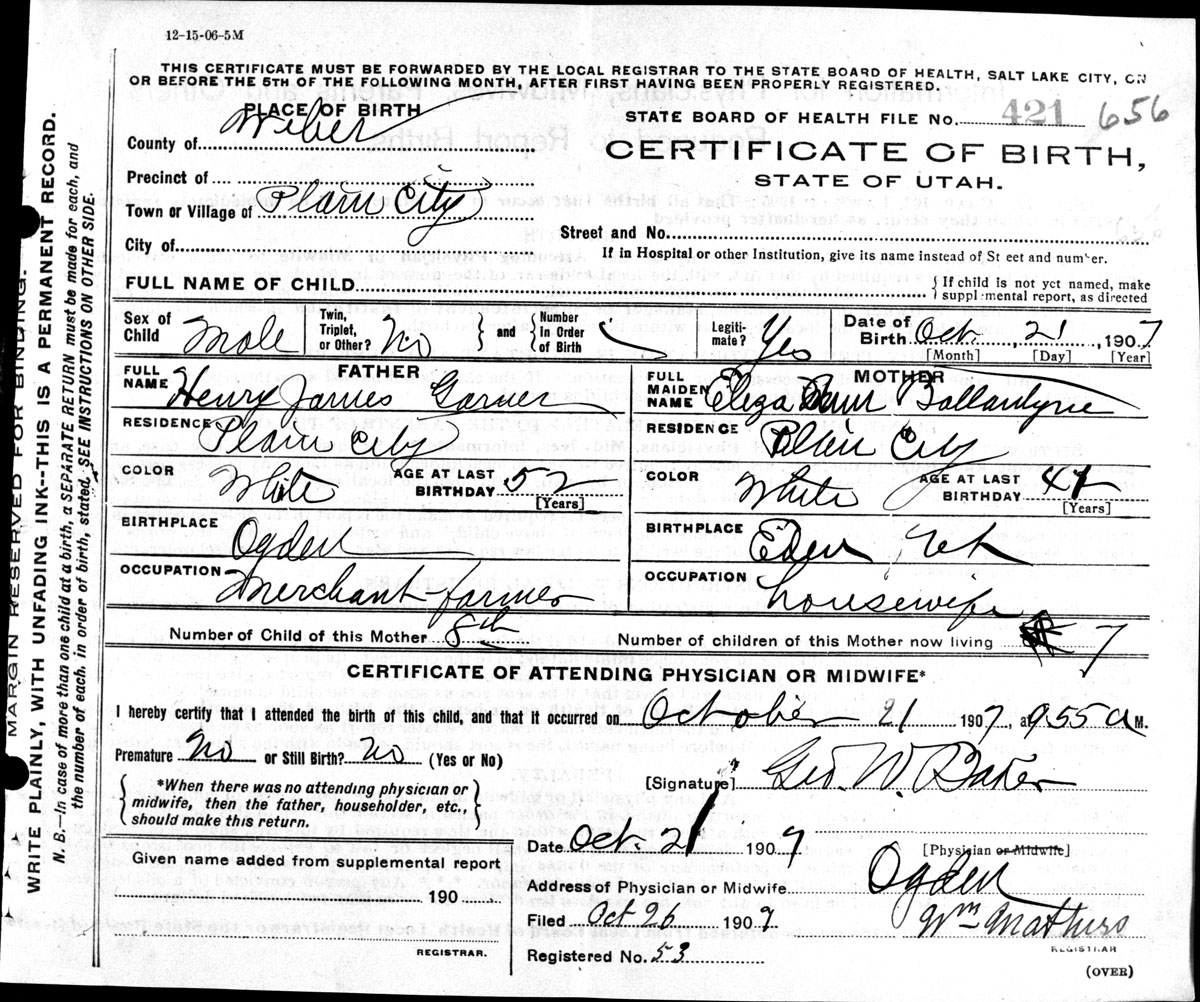 12-15-06-5M
THIS CERTIFICATE MUST BE FORWARDED BY THE LOCAL REGISTRAR TO THE STATE BOARD OF HEALTH, SALT LAKE CITY, ON
OR BEFORE THE 5TH OF THE FOLLOWING MONTH, AFTER FIRST HAVING BEEN PROPERLY REGISTERED.
PLACE OF BIRTH
STATE BOARD OF HEALTH FILE No. 421 656
County of Weber
CERTIFICATE OF BIRTH,
STATE OF UTAH.
Precinct of
Town or Village of Plain City
Street and No.
City of
If in Hospital or other Institution, give its name instead of St eet and number.
FULL NAME OF CHILD
{ If child is not yet named, make
supplemental report, as directed
Sex of Child Male Twin, Triplet, or Other? No } and { Number in Order of Birth Legiti-mate? Yes Date of Birth Oct. 21, 1907
[Month] [Day] [Year]
FATHER
MOTHER
FULL NAME Henry James Garner
FULL MAIDEN NAME Eliza Ann Ballantyne
RESIDENCE Plain City
RESIDENCE Plain City
COLOR White AGE AT LAST BIRTHDAY 52 [Years]
COLOR White AGE AT LAST BIRTHDAY [Years]
BIRTHPLACE Ogden
BIRTHPLACE Eden Ut
OCCUPATION Merchant-farmer
OCCUPATION housewife
Number of Child of this Mother 8th
Number of children of this Mother now living 7
CERTIFICATE OF ATTENDING PHYSICIAN OR MIDWIFE*
I hereby certify that I attended the birth of this child, and that it occurred on October 21 1907, at 955 a M.
Premature No or Still Birth? No (Yes or No)
[Signature] Geo. W. Baker
{ *When there was no attending physician or
midwife, then the father, householder, etc.,
should make this return. }
Date Oct. 21 1907
[Physician or Midwife]
Given name added from supplemental report
190
Address of Physician or Midwife Ogden
Filed Oct 26 1907 Wm
REGISTRAR
REGISTRAR.
Registered No. 53
(OVER)
MARGIN RESERVED FOR BINDING.
WRITE PLAINLY, WITH UNFADING INK--THIS IS A PERMANENT RECORD.
N. B.—In case of more than one child at a birth, a SEPARATE RETURN must be made for each, and
the number of each, in order of birth, stated. SEE INSTRUCTIONS ON OTHER SIDE.